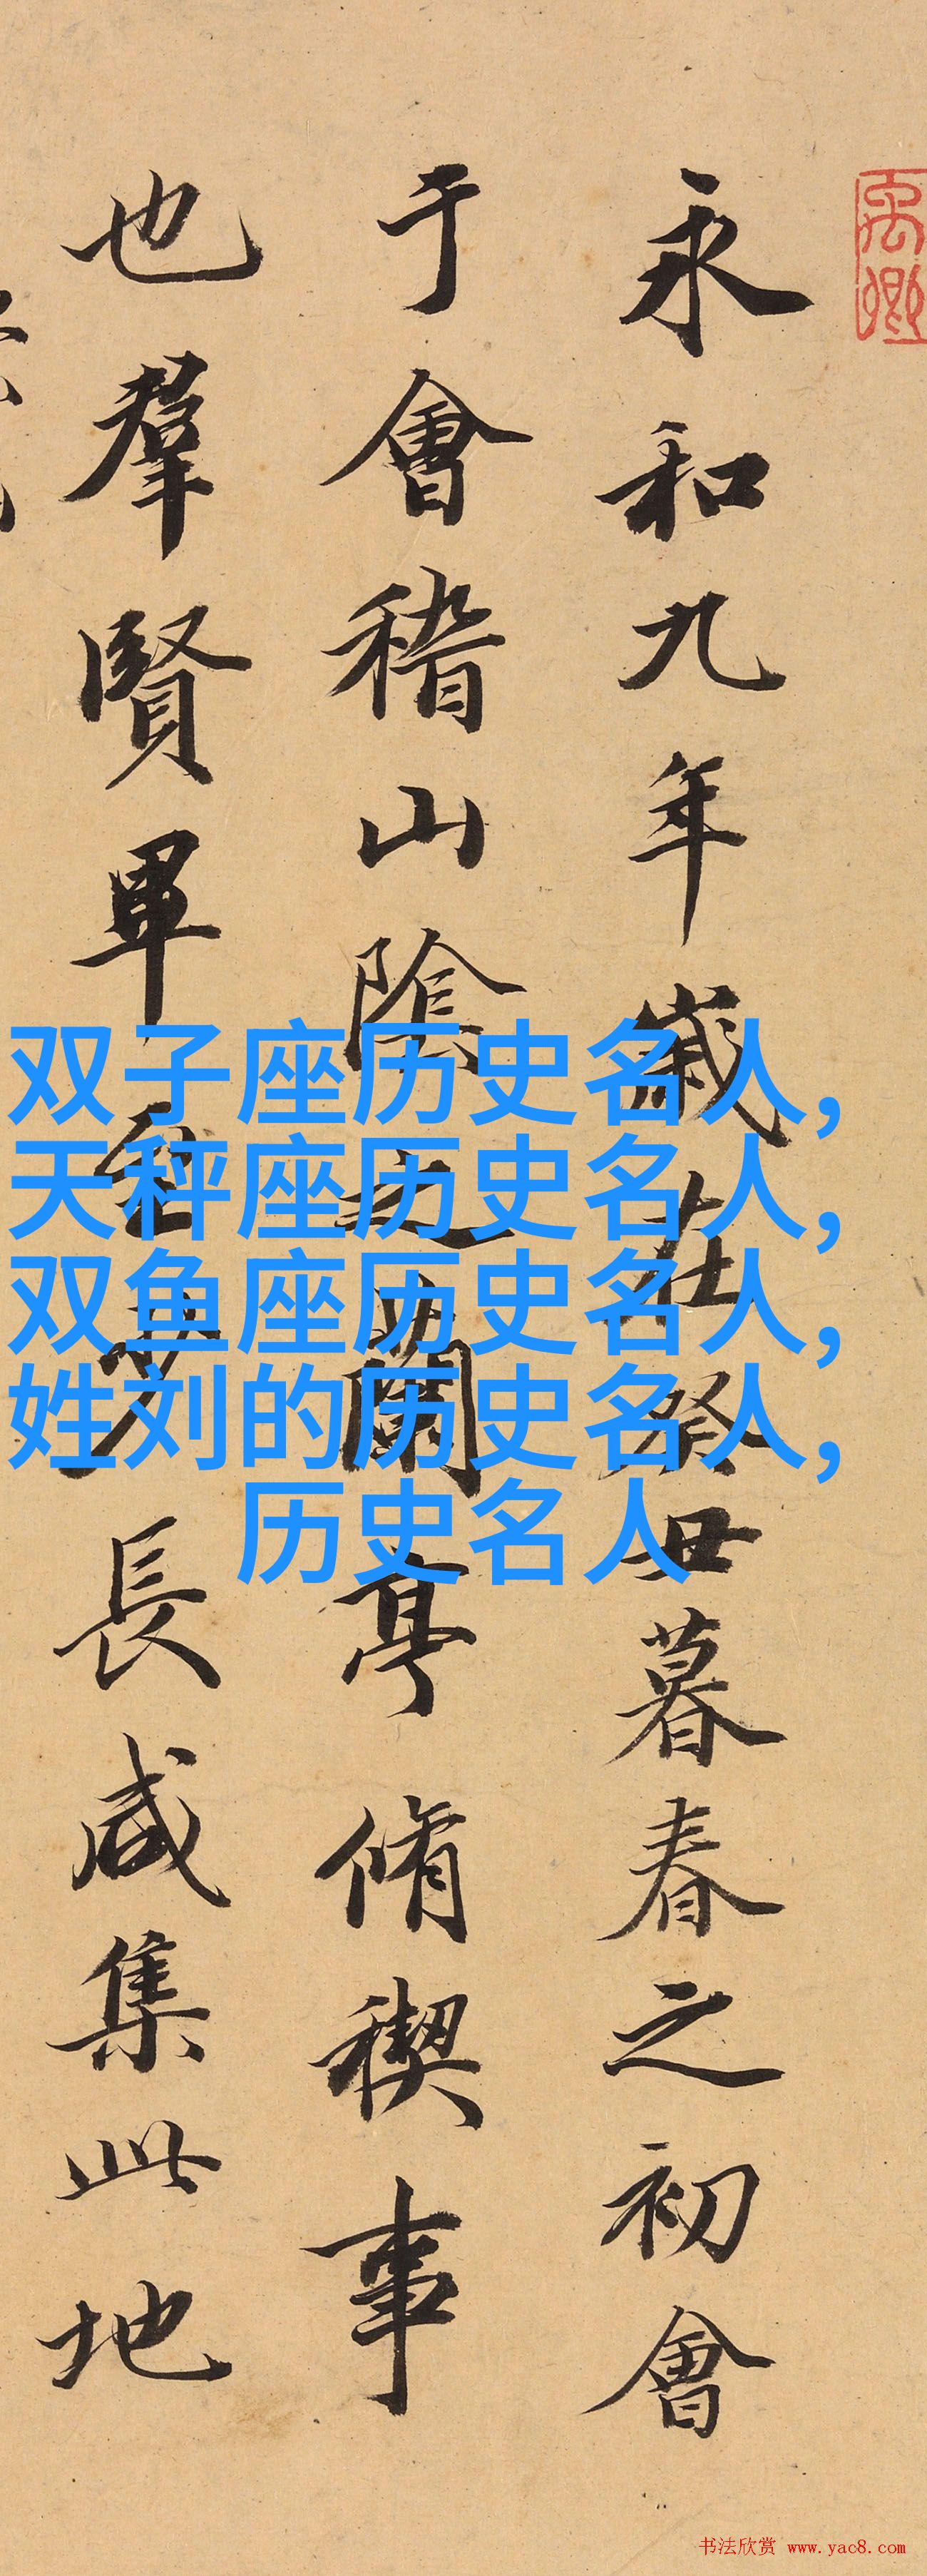 永和九年歲在癸丑暮春之初會
于會稽山陰之蘭亭脩稧事
也羣賢畢至少長咸集此地
双子座历史名人，
天秤座历史名人，
双鱼座历史名人，
姓刘的历史名人，
历史名人
书法欣赏 www.yac8.com